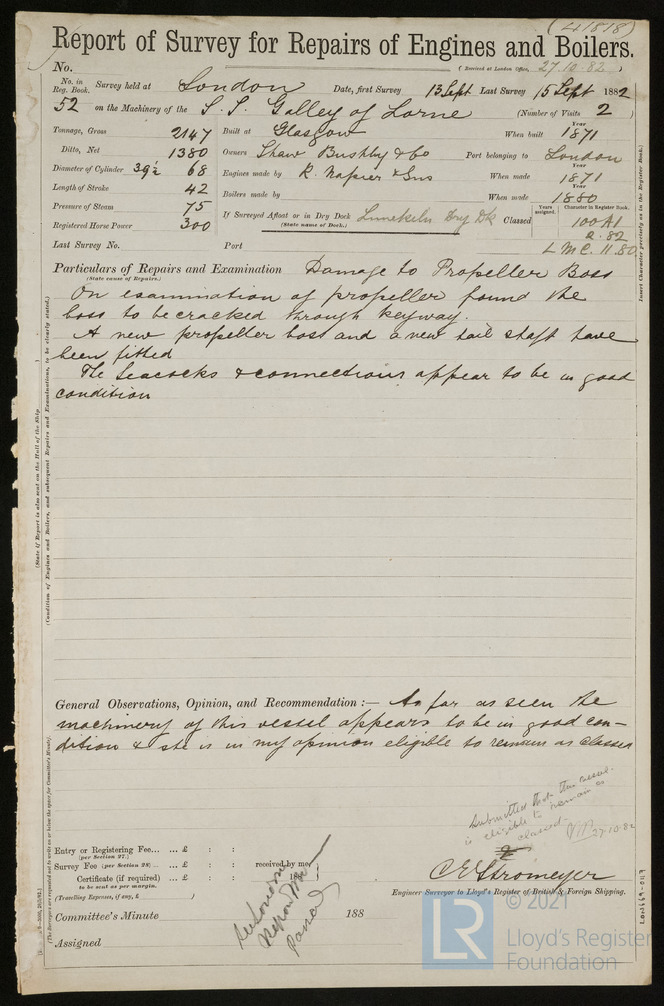 (41818)
Report of Survey for Repairs of Engines and Boilers.
No. (Received at London Office, 27.10.82)
No. in Reg. Book. Survey held at London Date, first Survey 13 Sept Last Survey 15 Sept 1882
52 on the Machinery of the S.S. Galley of Lorne (Number of Visits 2)
Tonnage, Gross 2147 Built at Glasgow When built Year 1871
Ditto, Net 1380 Owners Shaw Bushby & Co Port belonging to London
Diameter of Cylinder 39½ 68 Engines made by R. Napier & Sons When made Year 1871
Length of Stroke 42 Boilers made by When made Year 1880
Pressure of Steam 75 If Surveyed Afloat or in Dry Dock Limekiln Dry Dk Classed Years assigned. Character in Register Book. 100A1
(State name of Dock.) 2.82
Registered Horse Power 300
Last Survey No. Port LMC. 11.80
Particulars of Repairs and Examination Damage to Propeller Boss
(State cause of Repairs.)
On examination of propeller found the
boss to be cracked through keyway.
A new propeller boss and a new tail shaft have
been fitted
The seacocks & connections appear to be in good
condition
General Observations, Opinion, and Recommendation :— As far as seen the
machinery of this vessel appears to be in good con-
dition & she is in my opinion eligible to remain as classed
Submitted that this vessel
is eligible to remain as
classed. 27.10.82
Entry or Registering Fee... ... £ : :
(per Section 27.)
Survey Fee (per Section 28) ... ... £ : : received by me,
Certificate (if required) ... £ : : 188
to be sent as per margin.
(Travelling Expenses, if any, £ )
C E Stromeyer
Engineer Surveyor to Lloyd's Register of British & Foreign Shipping.
Committee's Minute 188
Assigned
(State if Report is also sent on the Hull of the Ship.
(Condition of Engines and Boilers, and subsequent Repairs and Examinations, to be clearly stated.)
(The Surveyors are requested not to write on or below the space for Committee's Minute.)
Insert Character precisely as in the Register Book.
LON669-0119
© 2021
LR
Lloyd's Register
Foundation